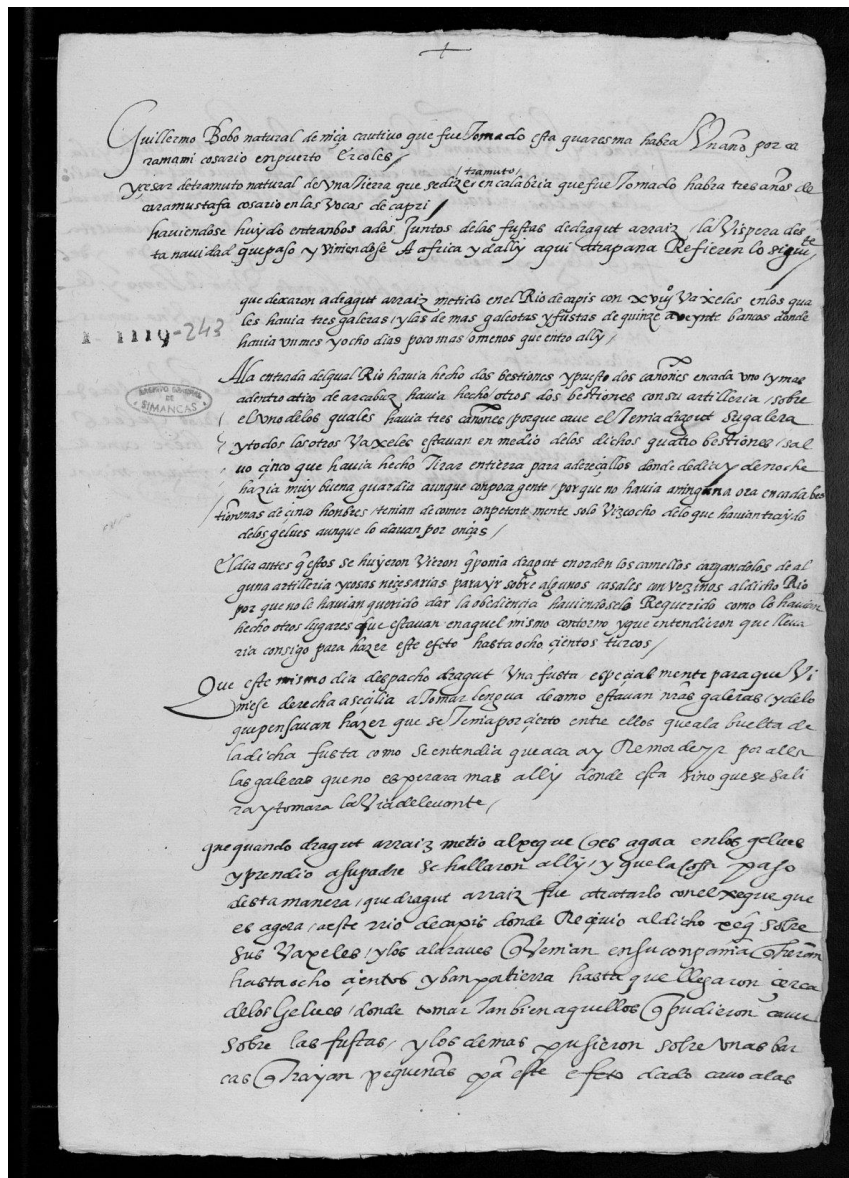 +
Guillermo Bobo natural de niça cautivo que fue Tomado esta quaresma habra Un año por ca
ramami cosario en puerto Ercoles /
y cesar de tramuto natural de Una Tierra que se dize / tramuto / en calabria que fue Tomado habra tres años de
caramustafa cosario en las Vocas de capri /
haviendose huydo entranbos ados Juntos de las fustas de dragut arraiz / la Vispera des
ta navidad que paso y Viniendose A africa y de ally aqui a trapana Refieren lo siguiente /
que dexaron a dragut arraiz metido en el Rio de capis con xviijº Vaxeles en los qua
les havia tres galeras / y las de mas galeotas y fustas de quinze a veynte bancos donde
havia un mes y ocho dias poco mas o menos que entro ally /
1119-243
ARCHIVO GENERAL DE SIMANCAS
A la entrada del qual Rio havia hecho dos bestiones y puesto dos cañones en cada uno / y mas
adentro a tiro de arcabuz havia hecho otros dos bestiones con su artilleria / sobre
el uno de los quales havia tres cañones / porque cave el Tenia dragut su galera
y todos los otros Vaxeles estavan en medio de los dichos quatro bestiones / sal
vo cinco que havia hecho Tirar en tierra para adereçallos donde de dia y de noche
hazia muy buena guardia aunque con poca gente / porque no havia a ninguna ora en cada bes
tion mas de cinco honbres / tenian de comer conpetentemente solo Vizcocho de lo que havian traydo
de los gelves aunque lo davan por onças /
El dia antes q estos se huyeron Vieron q ponia dragut en orden los camellos cargandolos de al
guna artilleria y cosas neçesarias para yr sobre algunos casales con vezinos al dicho Rio
por que no le havian querido dar la obediencia haviendoselo Requerido como lo havian
hecho otros lugares que estavan en aquel mismo contorno y que entendieron que lleva
ria consigo para hazer este efeto hasta ocho çientos turcos /
Que este mismo dia despacho dragut Una fusta espeçialmente para que Vi
niese derecha a seçilia a Tomar lengua de como estavan nras galeras / y de lo
que pensavan házer que se Tenia por çierto entre ellos que a la buelta de
la dicha fusta como se entendia que aca ay Remor de yr por alla
las galeras que no esperara mas ally donde esta sino que se sali
ra y tomara la Via de levante /
que quando dragut arraiz metio al xeque q es agora en los gelves
y prendio a su padre se hallaron ally / y que la cosa paso
desta manera / que dragut arraiz fue a tratarlo con el xeque que
es agora / a este rrio de capis donde Reçivio al dicho xeq sobre
sus Vaxeles / y los alaraves q Venian en su conpañia q heran
hasta ocho çientos yban por tierra hasta que llegaron çerca
de los Gelves / donde tomar Tanbien aquellos q pudieron caver
sobre las fustas / y los demas pusieron sobre unas bar
cas q trayan pequeñas pa este efeto dado cavo a las